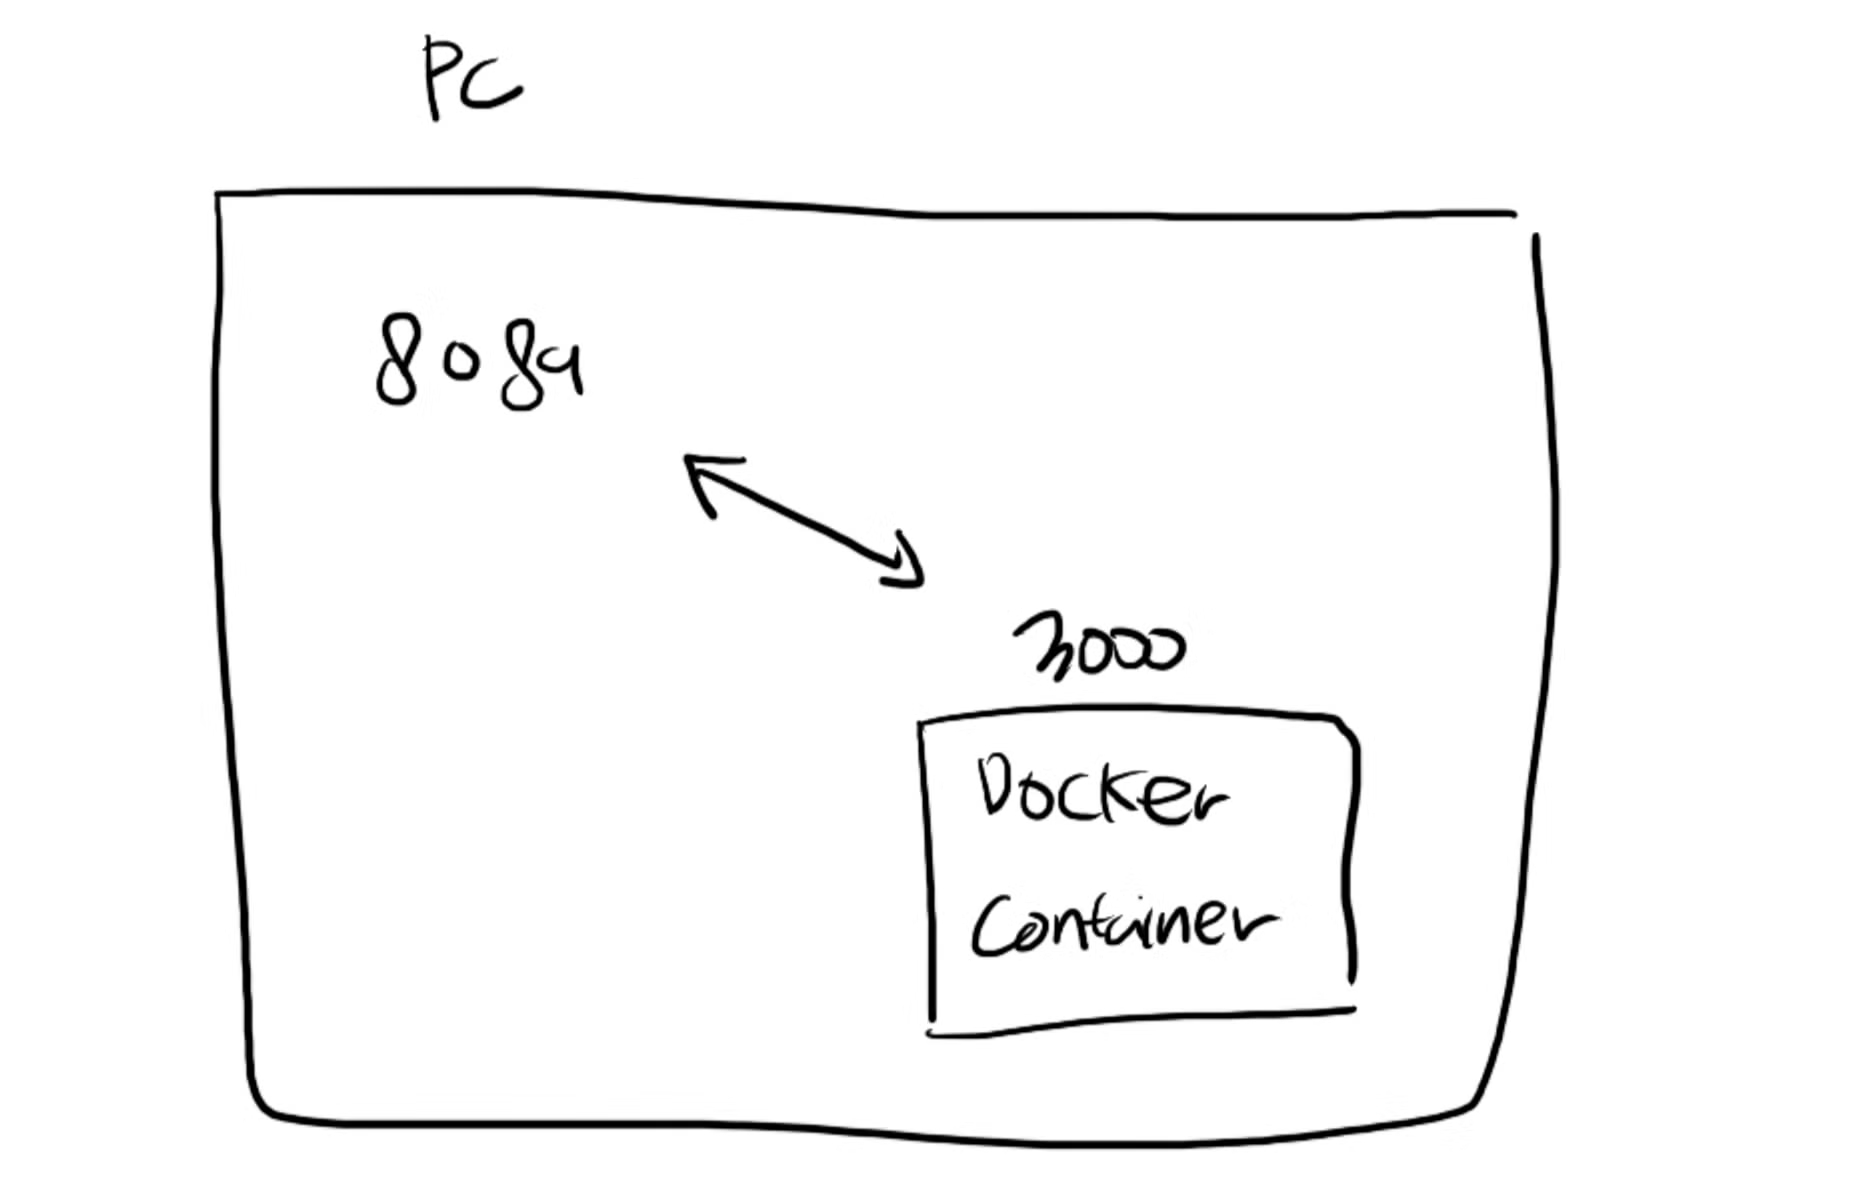 PC
8089
3000
Docker
Container